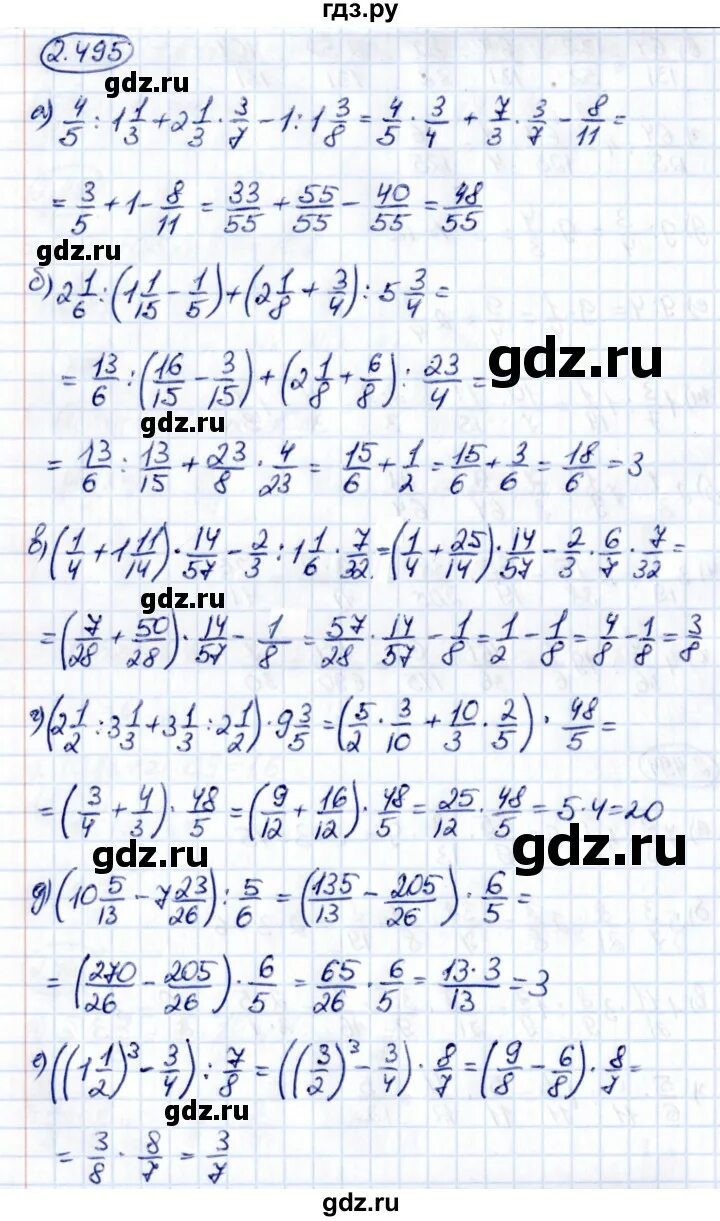 гдз.ру
2.495
gdz.ru
а) 4/5 : 1 1/3 + 2 1/3 · 3/7 - 1 : 1 3/8 = 4/5 · 3/4 + 7/3 · 3/7 - 8/11 =
= 3/5 + 1 - 8/11 = 33/55 + 55/55 - 40/55 = 48/55
gdz.ru
б) 2 1/6 : (1 1/15 - 1/5) + (2 1/8 + 3/4) : 5 3/4 =
gdz.ru
= 13/6 : (16/15 - 3/15) + (2 1/8 + 6/8) : 23/4 =
gdz.ru
= 13/6 : 13/15 + 23/8 · 4/23 = 15/6 + 1/2 = 15/6 + 3/6 = 18/6 = 3
в) (1/4 + 1 11/14) · 14/57 - 2/3 : 1 1/6 · 7/32 = (1/4 + 25/14) · 14/57 - 2/3 · 6/7 · 7/32 =
gdz.ru
= (7/28 + 50/28) · 14/57 - 1/8 = 57/28 · 14/57 - 1/8 = 1/2 - 1/8 = 4/8 - 1/8 = 3/8
gdz.ru
г) (2 1/2 : 3 1/3 + 3 1/3 : 2 1/2) · 9 3/5 = (5/2 · 3/10 + 10/3 · 2/5) · 48/5 =
= (3/4 + 4/3) · 48/5 = (9/12 + 16/12) · 48/5 = 25/12 · 48/5 = 5 · 4 = 20
gdz.ru
gdz.ru
д) (10 5/13 - 7 23/26) : 5/6 = (135/13 - 205/26) · 6/5 =
gdz.ru
= (270/26 - 205/26) · 6/5 = 65/26 · 6/5 = 13·3/13 = 3
е) ((1 1/2)³ - 3/4) : 7/8 = ((3/2)³ - 3/4) · 8/7 = (9/8 - 6/8) · 8/7 =
gdz.ru
= 3/8 · 8/7 = 3/7
gdz.ru